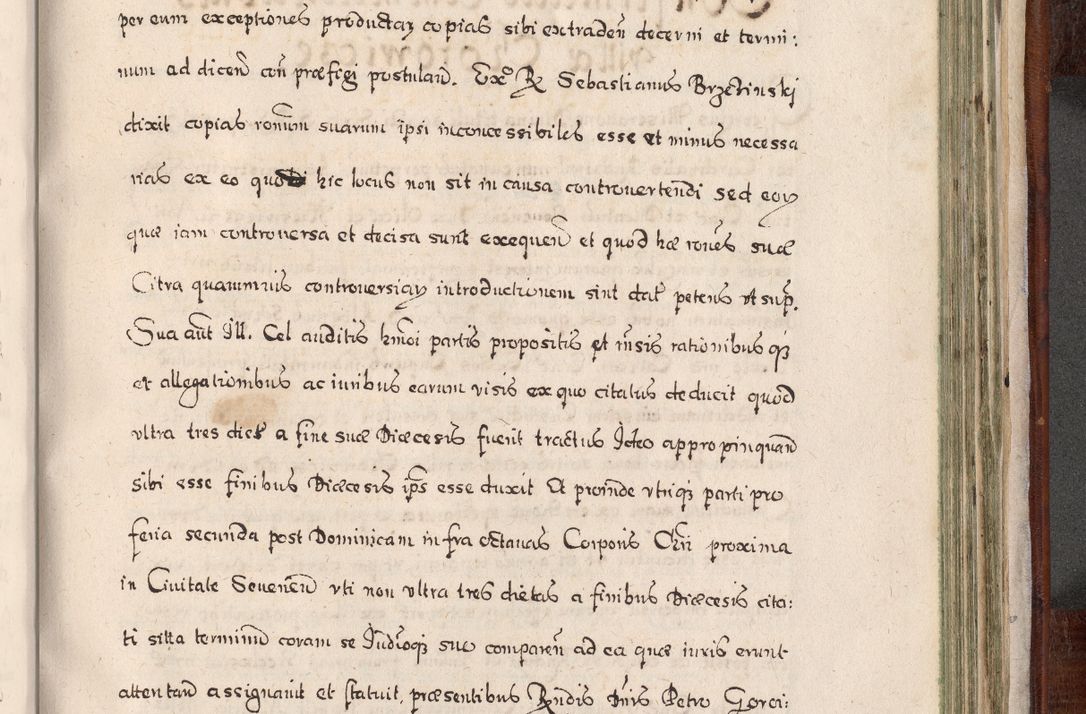 per eum exceptiones productaȝ copias sibi extradeñ decerni et termi:
num ad diceñ coñ præfigi postulaū. Exo R Sebastianus Brzezinski
dixit copias ronūm suarum ipsi inconcessibiles esse et minus necessa
rias ex eo quod hic locus non sit in causa controuertendi sed eoꝝ
quæ iam controuersa et decisa sunt exequeñ et quod hæ rones suæ
Citra quamuis controuersiaȝ introductionem sint datæ petens ut sup.
Sua aut Ill. Cel auditis hmoi partis propositis et insis rationibus qꝫ
et allegationibus ac iuribus earum visis ex quo citatus deducit quod
vltra tres dies a fine suæ Diæcesis fuerit tractus Ideo appropinquand
sibi esse finibus Diæcesis ips esse duxit Et proinde vtriqꝫ parti pro
feria secunda post Dominicam infra octauas Corporis Chri proxima
in Ciuitate Seueneñ vti non vltra tres dietas a finibus Diæcesis cita:
ti sitta terminū coram se Iudiōqꝫ suo compareñ ad ea quæ iuris erunt
attentand assignauit et statuit, præsentibus Rndis Dnis Petro Gorci: